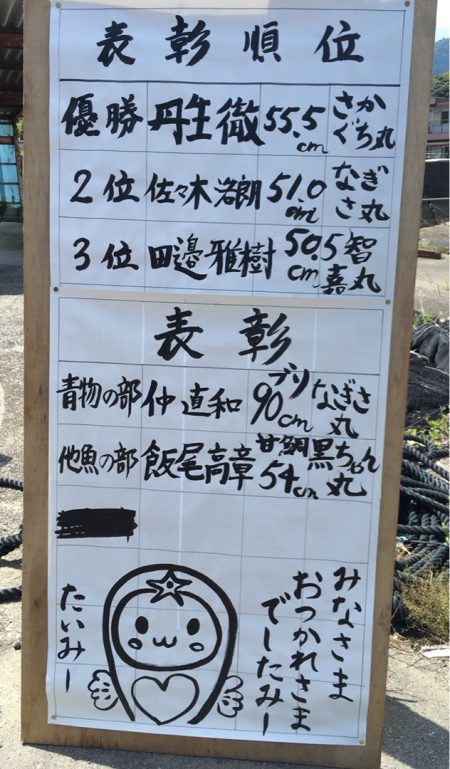 表彰順位
優勝 丹生徹 55.5cm さかぐち丸
2位 佐々木洛朗 51.0cm なぎさ丸
3位 田邉雅樹 50.5cm 智嘉丸
表彰
青物の部 仲直和 ブリ90cm なぎさ丸
他魚の部 飯尾高章 甘鯛54cm 黒ちゃん丸
みなさま
おつかれさま
でしたみー
たいみー